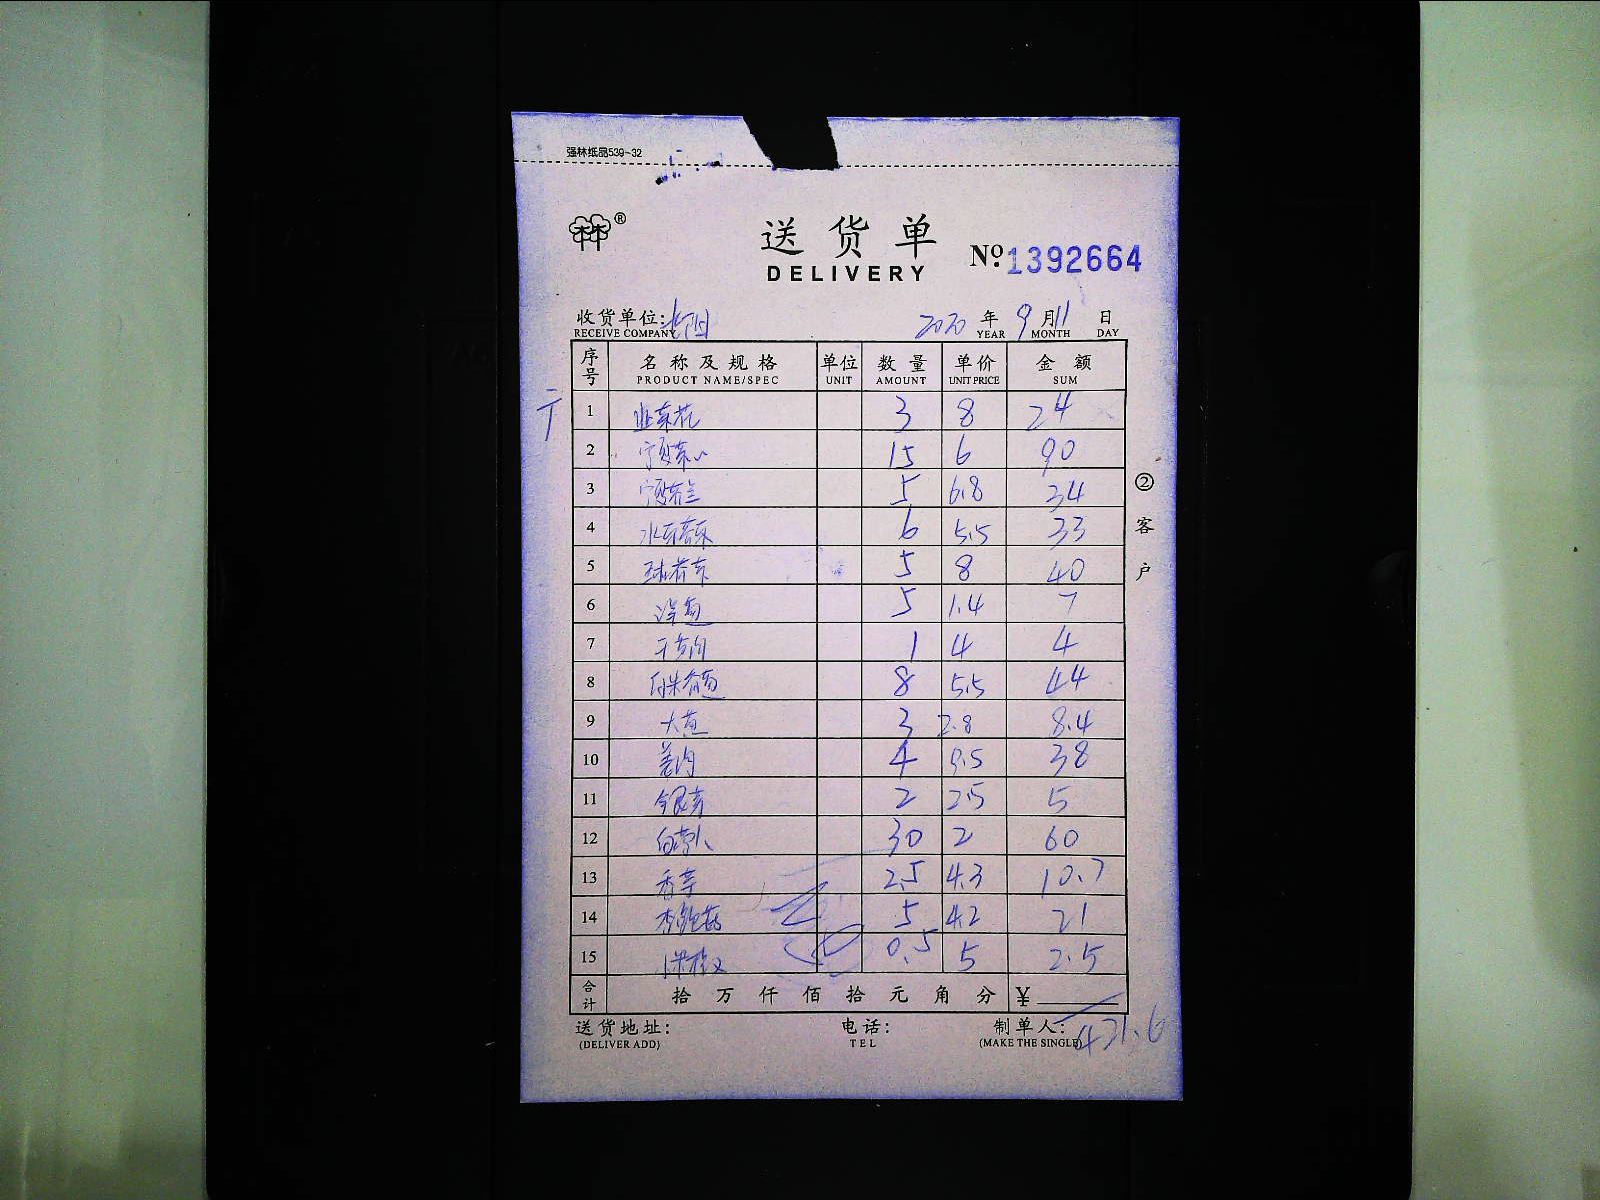 强林纸品539-32
林®
送货单
DELIVERY
Nº.1392664
收货单位: 2020 年 9 月 11 日
RECEIVE COMPANY YEAR MONTH DAY
序号 名称及规格 单位 数量 单价 金额
PRODUCT NAME/SPEC UNIT AMOUNT UNIT PRICE SUM
1 韭菜花 3 8 24
2 宁夏菜心 15 6 90
3 宁夏芥兰 5 6.8 34
4 水东芥菜 6 5.5 33
5 5 8 40
6 洋葱 5 1.4 7
7 1 4 4
8 8 5.5 44
9 大葱 3 2.8 8.4
10 姜肉 4 9.5 38
11 银芽 2 2.5 5
12 白萝卜 30 2 60
13 香芹 2.5 4.3 10.7
14 杏鲍菇 5 4.2 21
15 0.5 5 2.5
合计 拾 万 仟 佰 拾 元 角 分 ¥
421.6
送货地址: 电话: 制单人:
(DELIVER ADD) TEL (MAKE THE SINGLE)
②客户